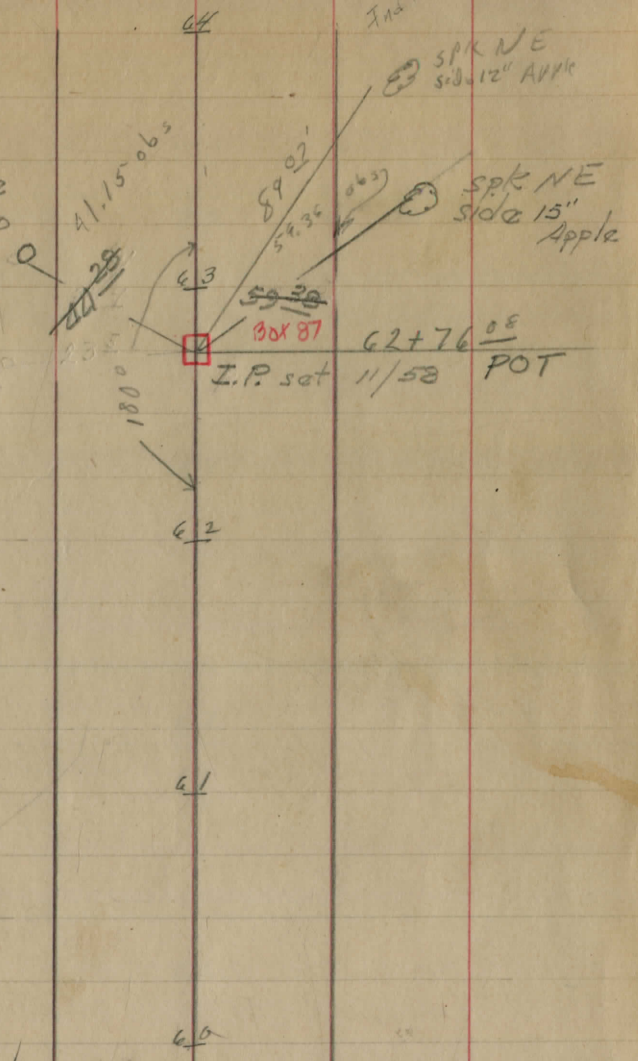 64
Ind
spk NE
side 12" Apple
41.15 obs
89 02'
obs
spk NE
side 15"
Apple
63
59 38
Box 87
62+76 08
I.P. set 11/58 POT
180°
62
61
60